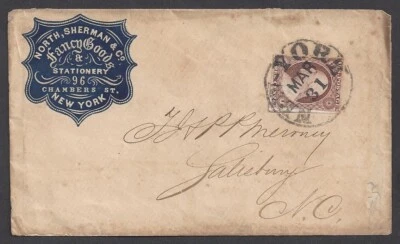 NORTH, SHERMAN & Co.
Fancy Goods
&
STATIONERY
96
CHAMBERS ST.
NEW YORK
YORK
MAR
31
Salisbury
N.C.